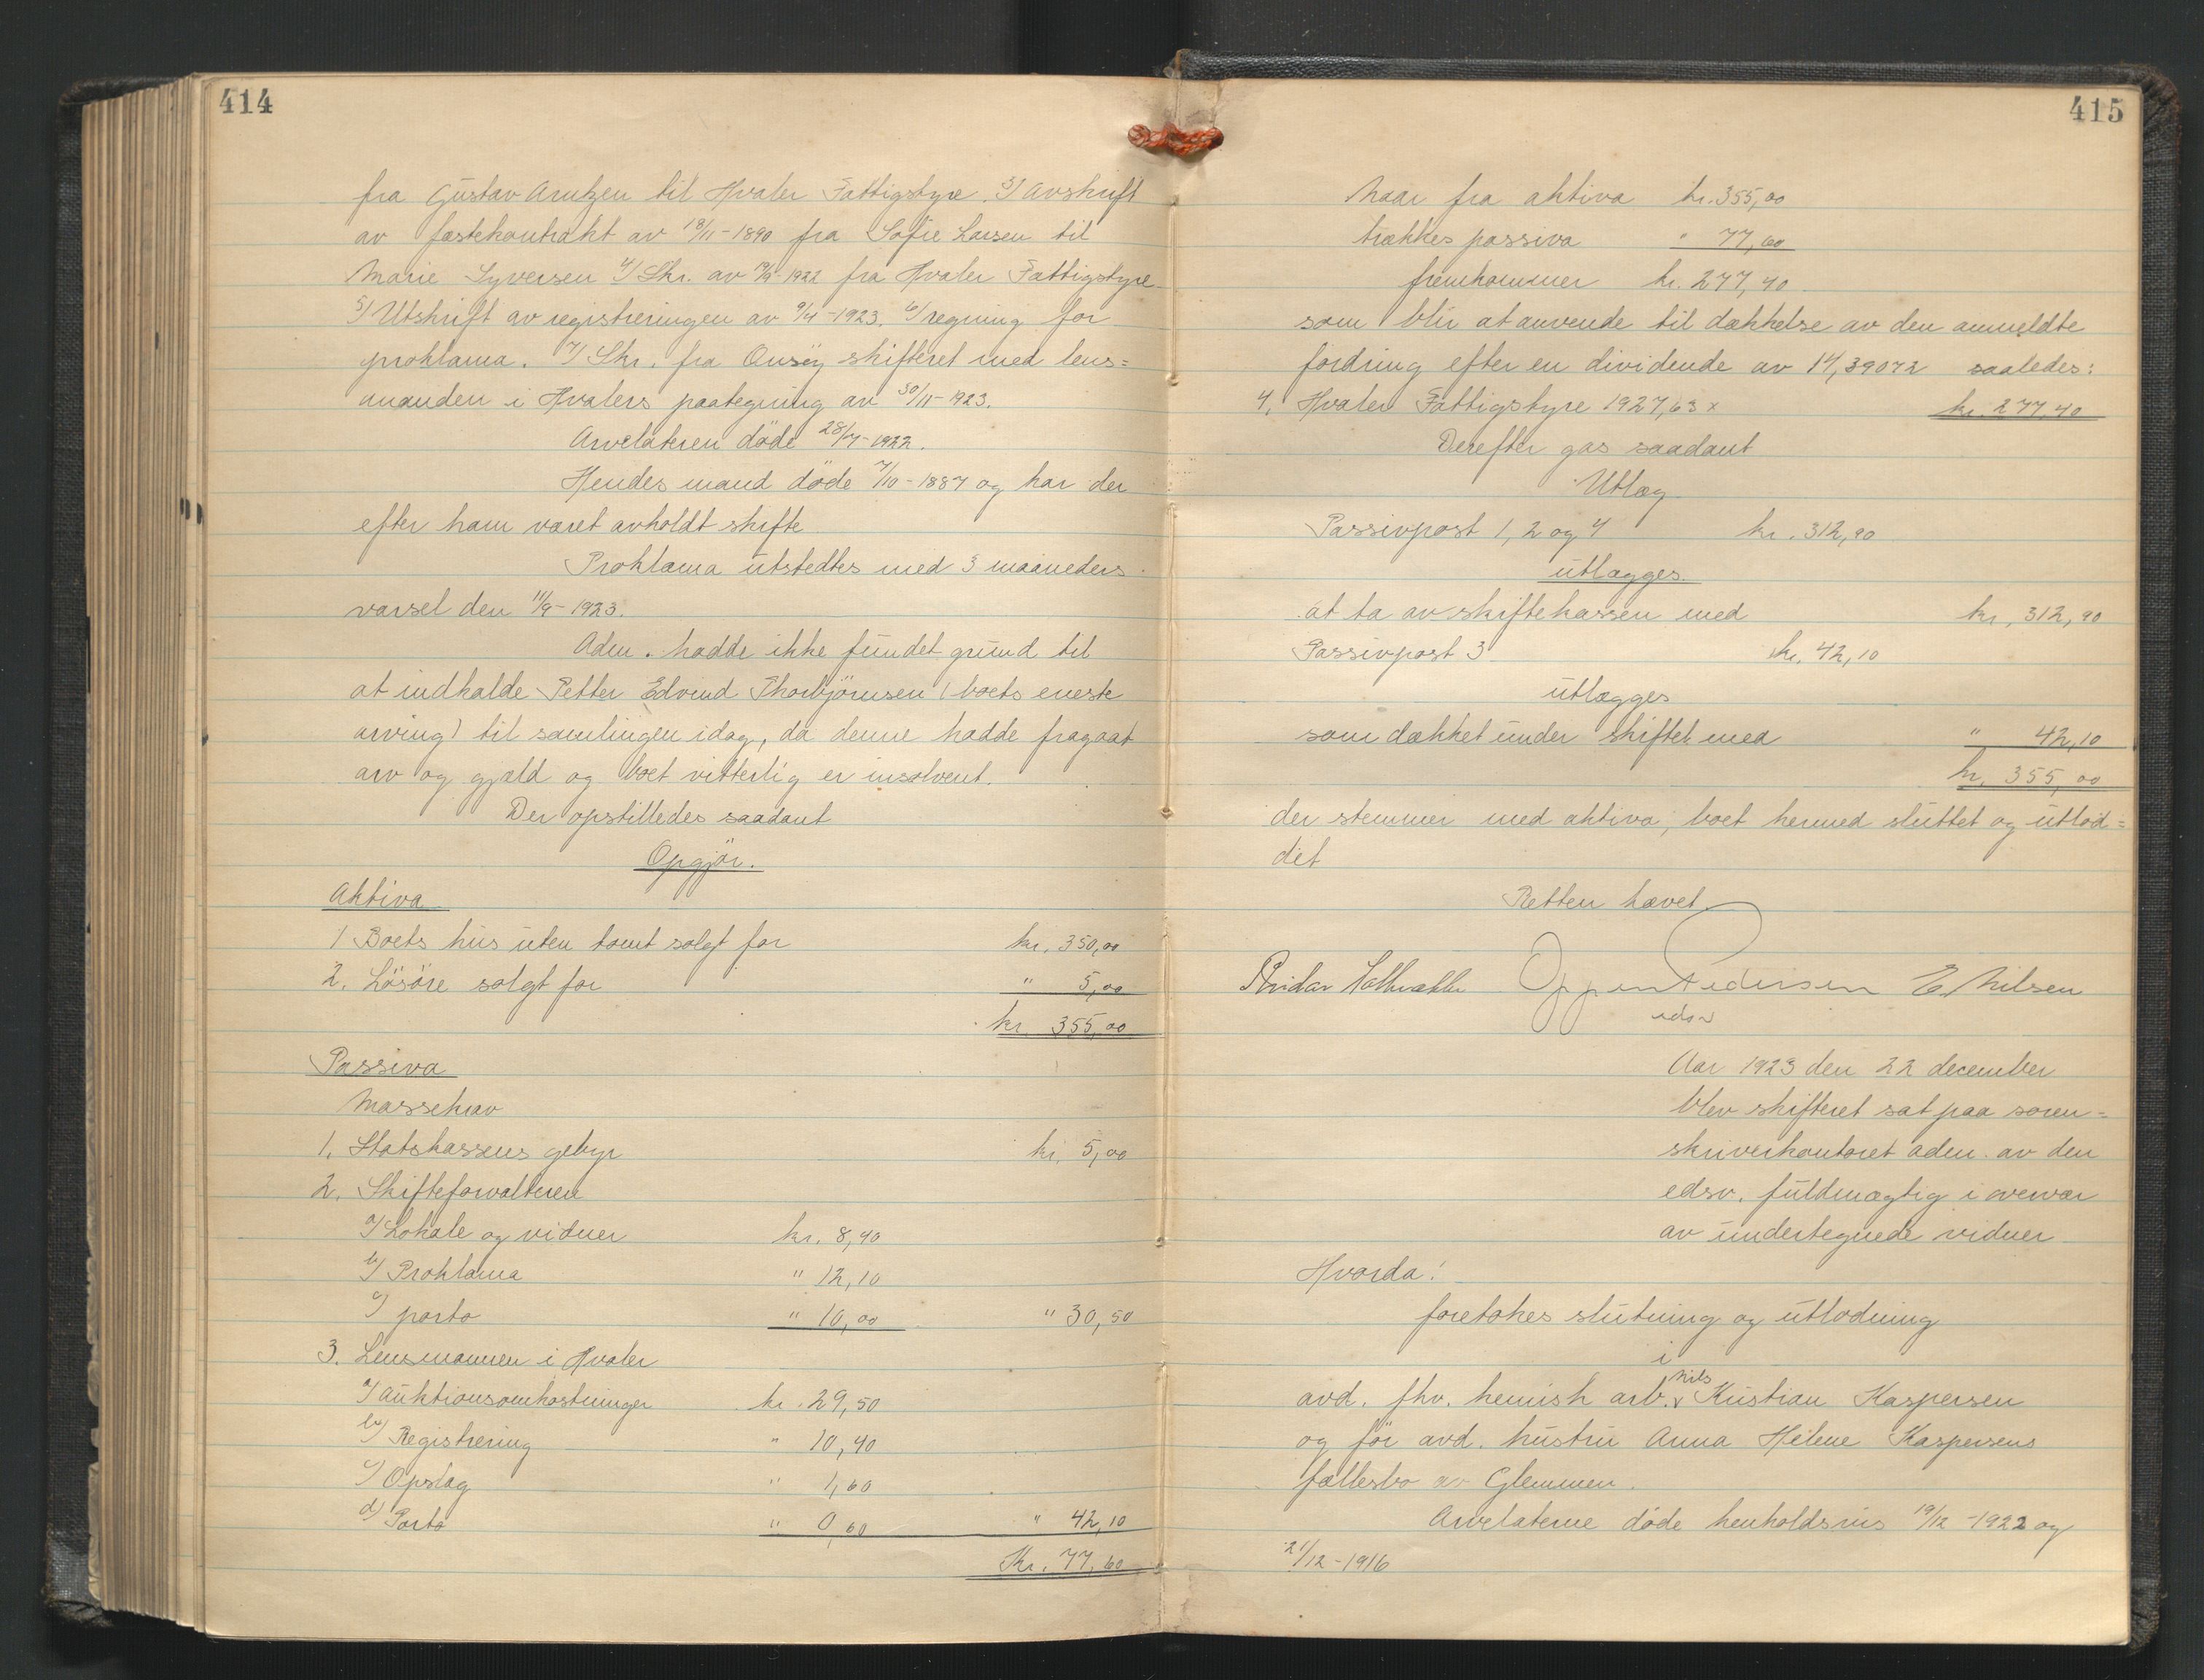 414
fra Gustav Arntzen til Hvaler Fattigstyre. 3/ Avskrift
av festekontrakt av 18/11-1890 fra Sofie Larsen til
Marie Syversen 4/ Skr. av 19/9-1922 fra Hvaler Fattigstyre
5/ Utskrift av registreringen av 9/4-1923. 6/ regning for
proklama. 7/ Skr. fra Onsöy skifteret med lens=
manden i Hvalers paategning av 30/11-1923.
Arvelateren döde 28/7-1922.
Hendes mand döde 7/10-1887 og har der
efter ham været avholdt skifte
Proklama utstedtes med 3 maaneders
varsel den 11/9-1923.
Adm. hadde ikke fundet grund til
at indkalde Petter Edvind Thorbjörnsen (boets eneste
arving) til samlingen idag, da denne hadde fragaat
arv og gjæld og boet vitterlig er insolvent.
Der opstilledes saadant
Opgjör.
Aktiva
1 Boets hus uten tomt solgt for kr. 350,00
2. Lösöre solgt for " 5,00
kr. 355,00
Passiva
Massekrav
1. Statskassens gebyr kr. 5,00
2. Skifteforvalteren
a/ Lokale og vidner kr. 8,40
b/ Proklama " 12,10
c/ porto " 10,00 " 30,50
3. Lensmannen i Hvaler
a/ auktionsomkostninger kr. 29,50
b/ Registrering " 10,40
c/ Opslag " 1,60
d/ Porto " 0,60 " 42,10
Kr. 77,60
415
Naar fra aktiva kr. 355,00
trækkes passiva " 77,60
fremkommer kr. 277,40
som blir at anvende til dækkelse av den anmeldte
fordring efter en dividende av 14,39072 saaledes:
4. Hvaler Fattigstyre 1927,63 x kr. 277,40
Derefter gas saadant
Utlæg
Passivpost 1, 2 og 4 kr. 312,90
utlægges
at ta av skiftekassen med kr. 312,90
Passivpost 3 kr. 42,10
utlægges
som dækket under skiftet med " 42,10
kr. 355,00
der stemmer med aktiva, boet hermed sluttet og utlod=
det
Retten hævet
Oppen Pedersen E. Nilsen
edsv
Aar 1923 den 22 december
blev skifteret sat paa soren=
skriverkontoret adm. av den
edsv. fuldmægtig i overvær
av undertegnede vidner
Hvorda!
foretokes slutning og utlodning
i
avd. fhv. kemisk arb. Nils Kristian Kaspersen
og för avd. hustru Anna Helene Kaspersens
fællesbo av Glemmen.
Arvelaterne döde henholdsvis 19/12-1922 og
21/12-1916